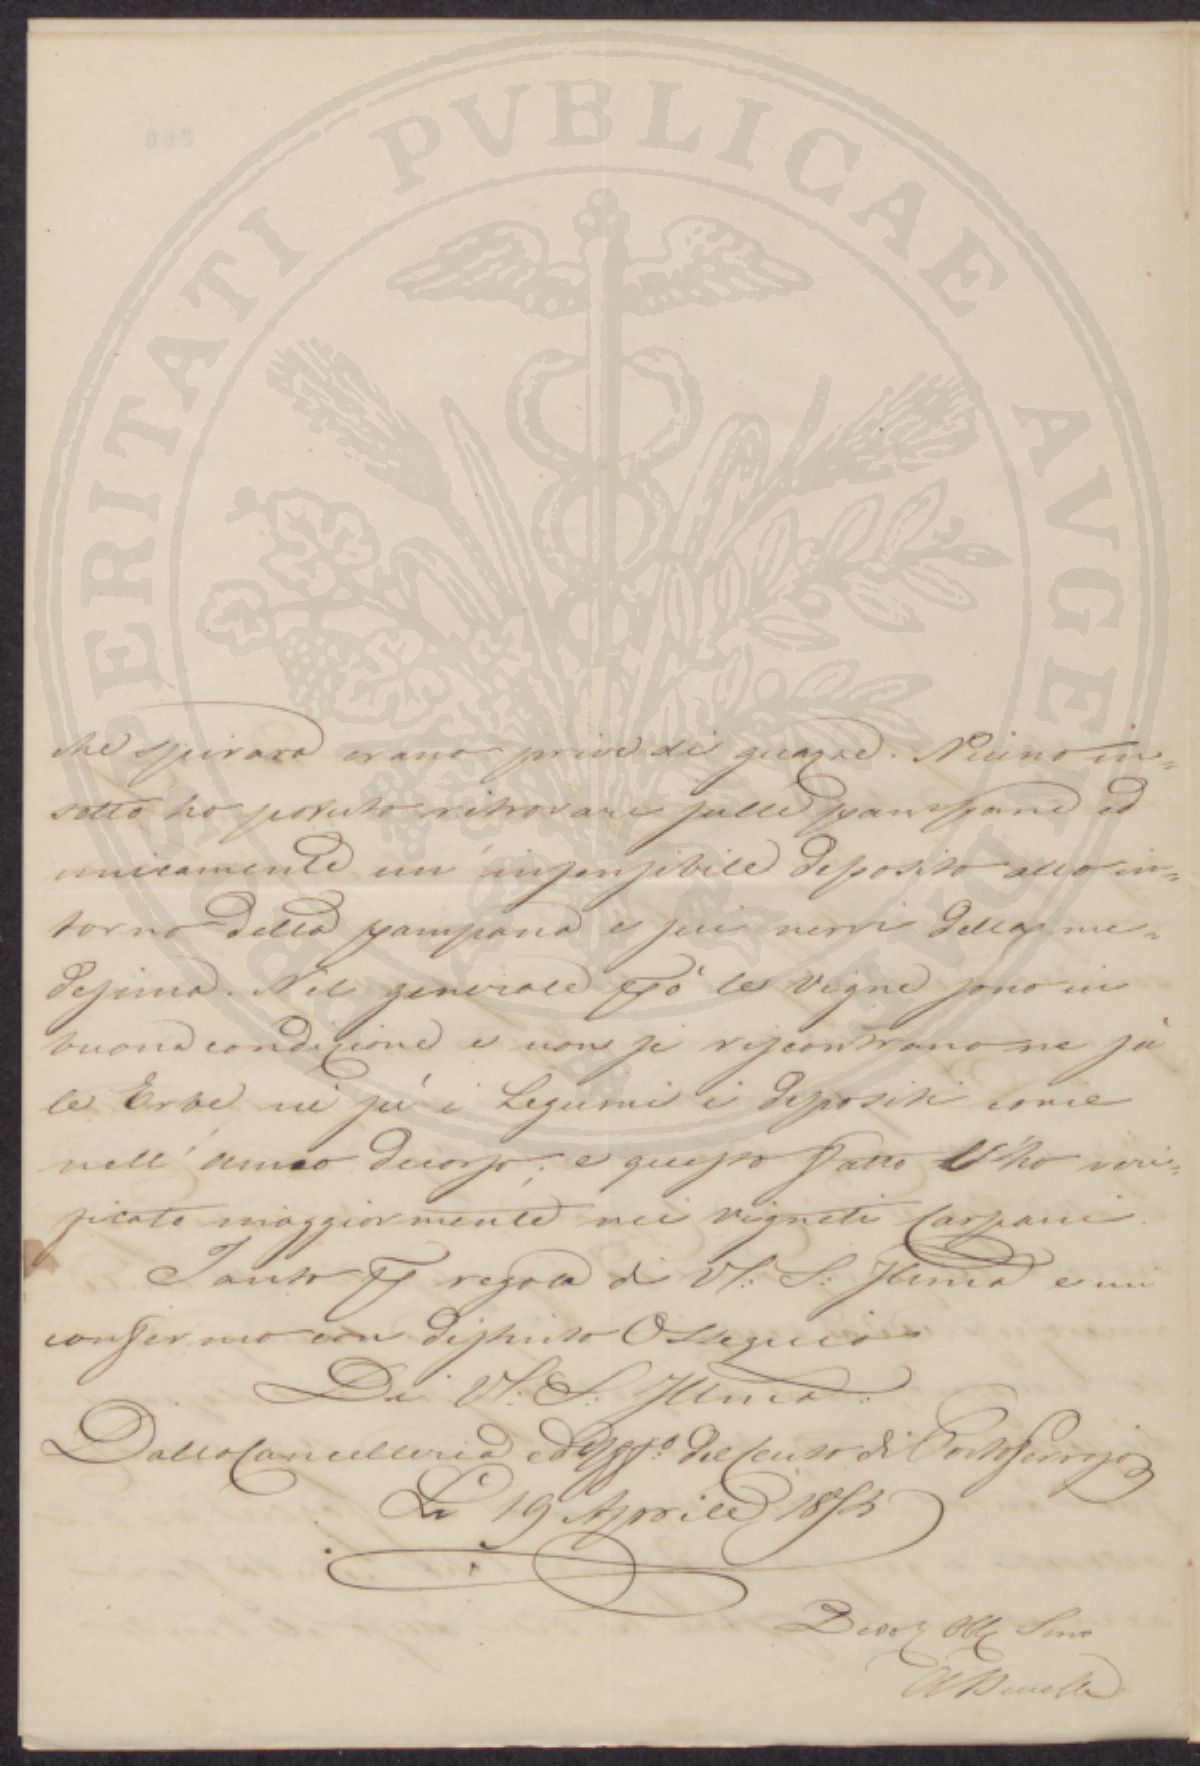 PROSPERITATI PUBLICAE AVGENDAE
che spirava erano prive di guazze. Niuno in=
setto ho potuto ritrovare sulle pampane ed
unicamente un' insensibile deposito allo in=
torno della pampana e sui nervi della me=
desima. Nel generale però le vigne sono in
buona condizione e non si riscontrano ne sù
le Erbe, ne sù i Legumi i depositi come
nell' anno decorso, e questo fatto l'ho veri=
ficato maggiormente nei vigneti
Tanto p regola di V: S: Illma e mi
confermo con distinto Ossequio
Di V: S: Illma:
Dalla Cancelleria ed Uffo. del Censo di Portoferrajo
Li 19 Aprile
Devot Obb Servo